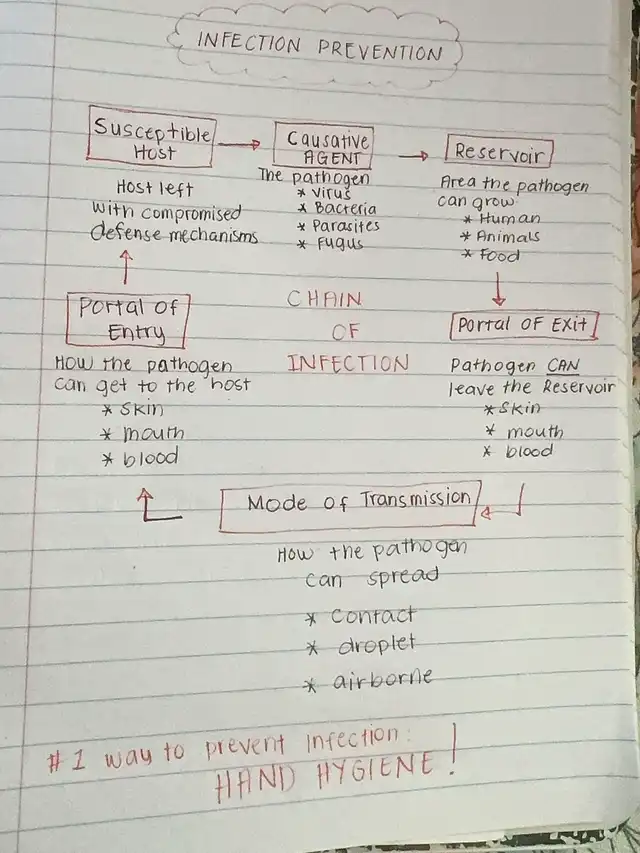 INFECTION PREVENTION
Susceptible
Host
Host left
with compromised
defense mechanisms
Causative
AGENT
The pathogen
* Virus
* Bacteria
* Parasites
* Fugus
Reservoir
Area the pathogen
can grow.
* Human
* Animals
* Food
Portal of
Entry
How the pathogen
can get to the host
* skin
* mouth
* blood
CHAIN
OF
INFECTION
Portal OF Exit
Pathogen CAN
leave the Reservoir
* skin
* mouth
* blood
Mode of Transmission
How the pathogen
can spread
* contact
* droplet
* airborne
#1 way to prevent infection:
HAND HYGIENE!